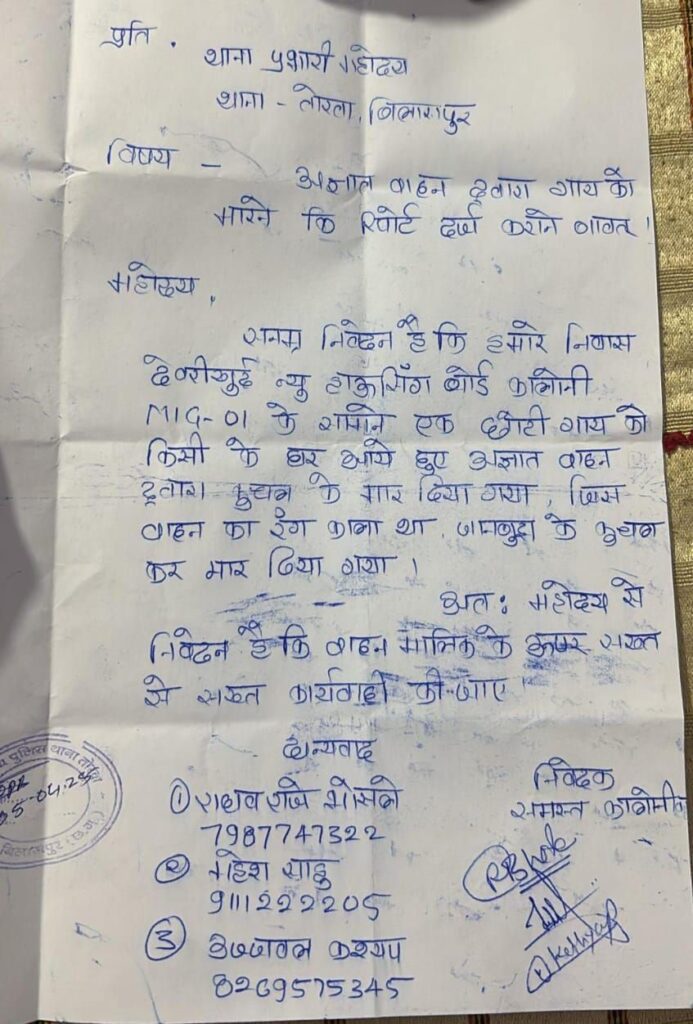 प्रति .
थाना प्रभारी महोदय
थाना - तोरवा, बिलासपुर
विषय -
अज्ञात वाहन द्वारा गाय को
मारने कि रिपोर्ट दर्ज कराने बाबत ।
महोदय ,
सनम्र निवेदन है कि हमारे निवास
देवरीखुर्द न्यु हाऊसिंग बोर्ड कालोनी
MIG-01 के सामने एक छोटी गाय को
किसी के घर आये हुए अज्ञात वाहन
द्वारा कुचल के मार दिया गया , जिस
वाहन का रंग काला था , जानबुझ के कुचल
कर मार दिया गया ।
अत: महोदय से
निवेदन है कि वाहन मालिक के ऊपर सख्त
से सख्त कार्यवाही की जाए ।
धन्यवाद
① राघव राजे भोसले
7987747322
② महेश साहु
9111222205
③ उज्जवल कश्यप
8269575345
निवेदक
समस्त
पुलिस थाना
05-04.25
बिलासपुर (छ.ग.)
Kashyap